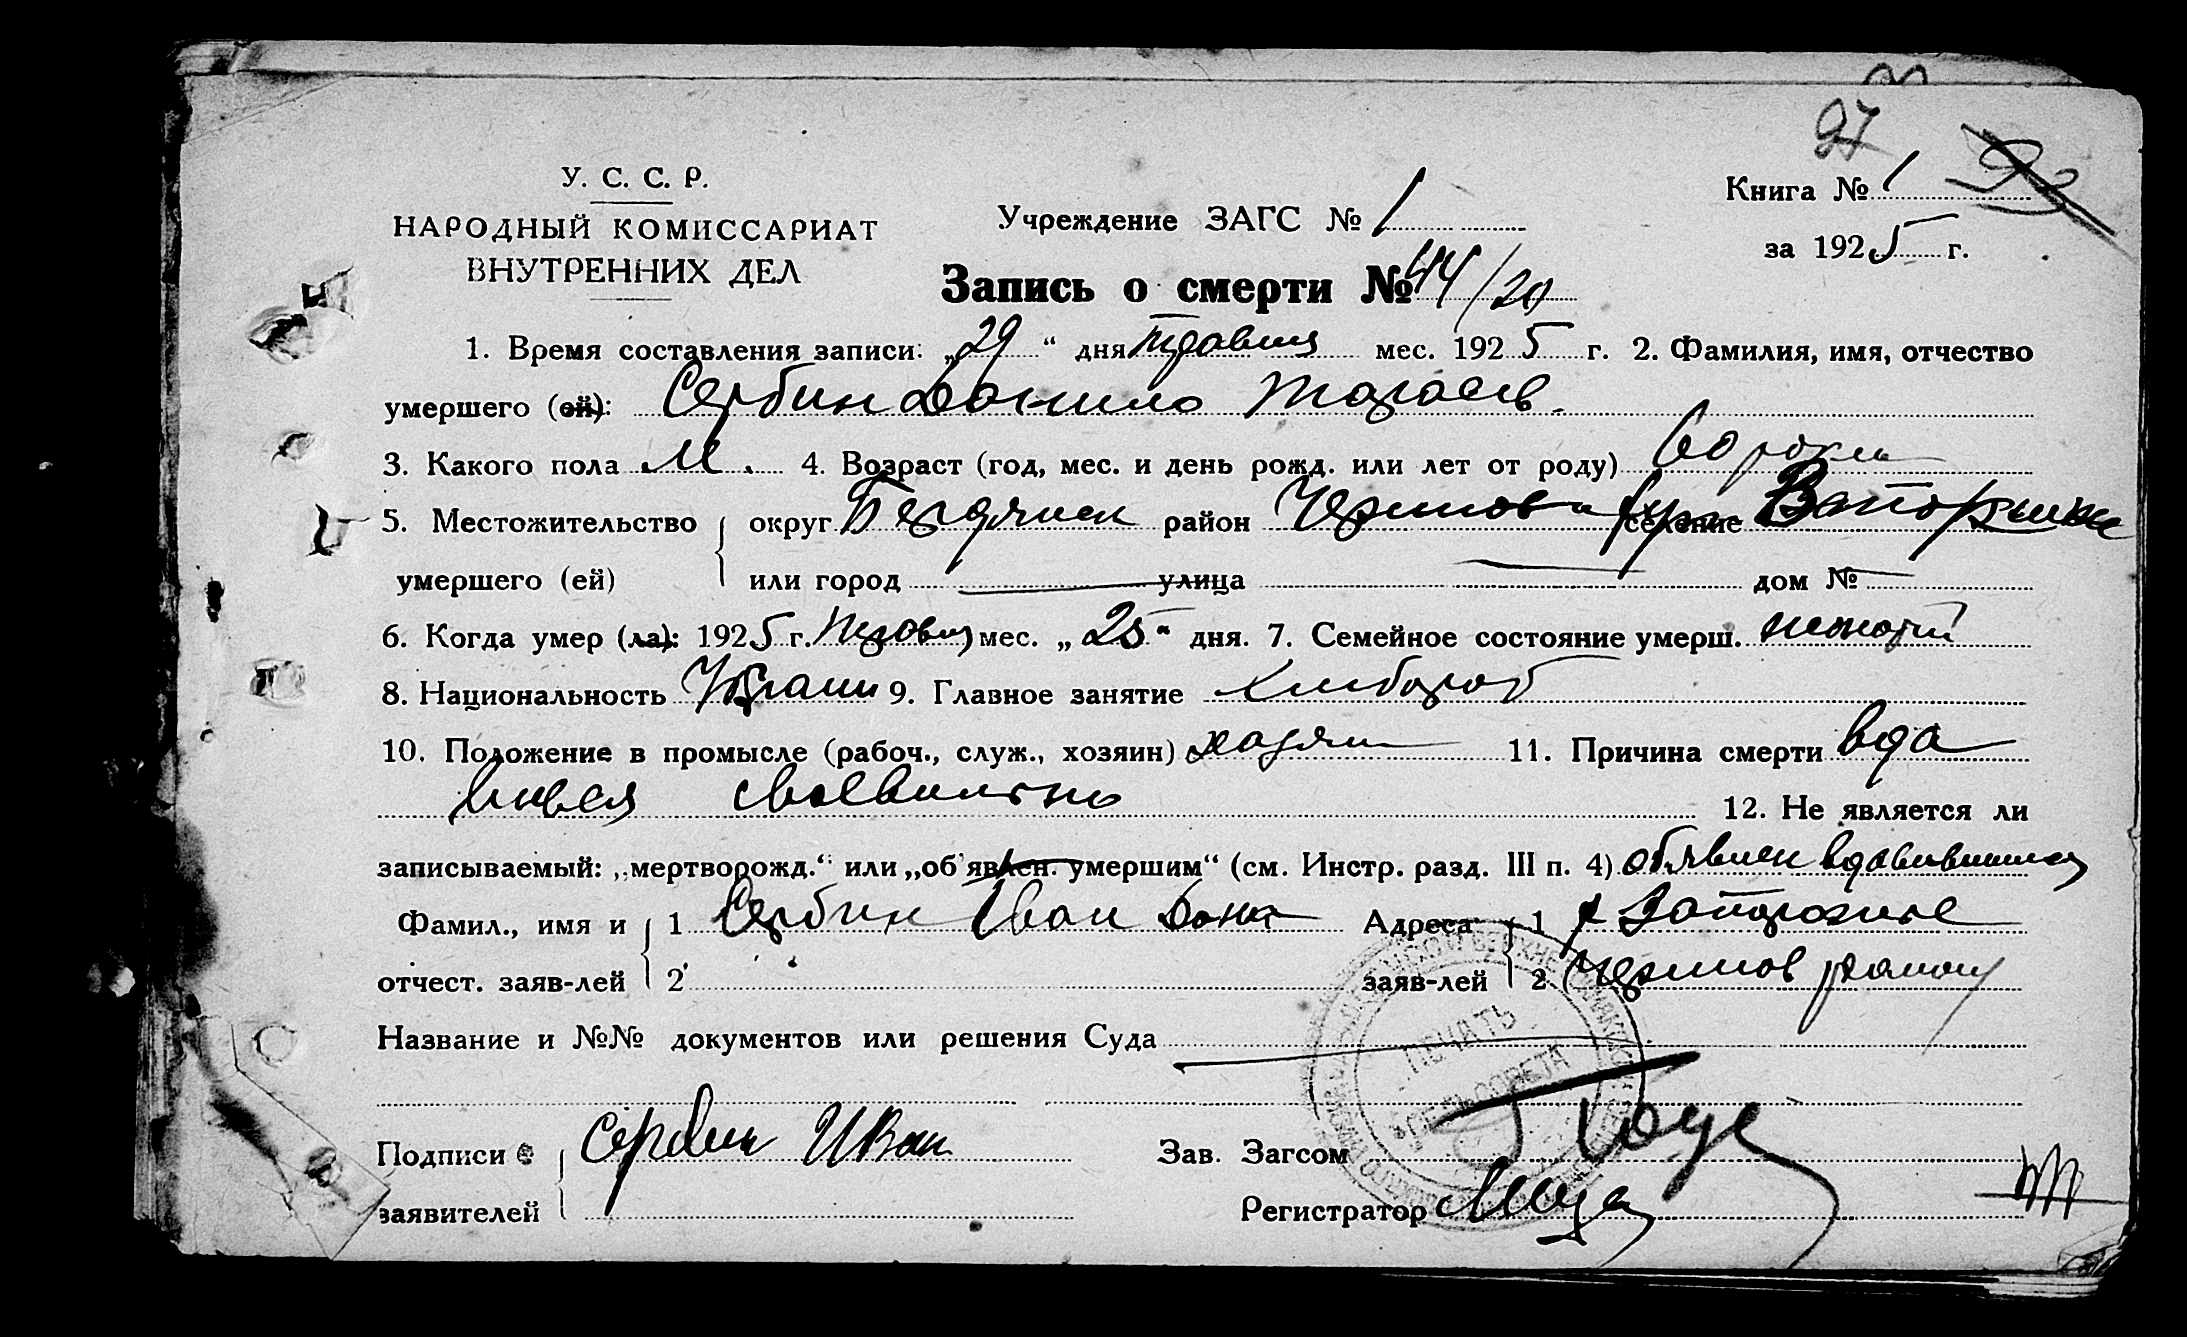 97
У. С. С. Р.
НАРОДНЫЙ КОМИССАРИАТ
ВНУТРЕННИХ ДЕЛ
Учреждение ЗАГС № 1
Книга № 1
за 1925 г.
Запись о смерти № 44/20
1. Время составления записи: „29“ дня травня мес. 1925 г. 2. Фамилия, имя, отчество
умершего (ей): Сербин Данило
3. Какого пола М. 4. Возраст (год, мес. и день рожд. или лет от роду) 60 роки
5. Местожительство округ Бердянск район селение
умершего (ей) или город улица дом №
6. Когда умер (ла): 1925 г. мес. „25“ дня. 7. Семейное состояние умерш. жонатий
8. Национальность Украин 9. Главное занятие хлибороб
10. Положение в промысле (рабоч., служ., хозяин) хазяин 11. Причина смерти вда
вився своевильно 12. Не является ли
записываемый: „мертворожд.“ или „об'явлен. умершим“ (см. Инстр. разд. III п. 4)
Фамил., имя и 1 Сербин Иван Дани Адреса 1
отчест. заяв-лей 2 заяв-лей 2 району
Название и №№ документов или решения Суда
ПЕЧАТЬ
СЕЛЬСОВЕТА
Подписи Сербин Иван Зав. Загсом
заявителей Регистратор